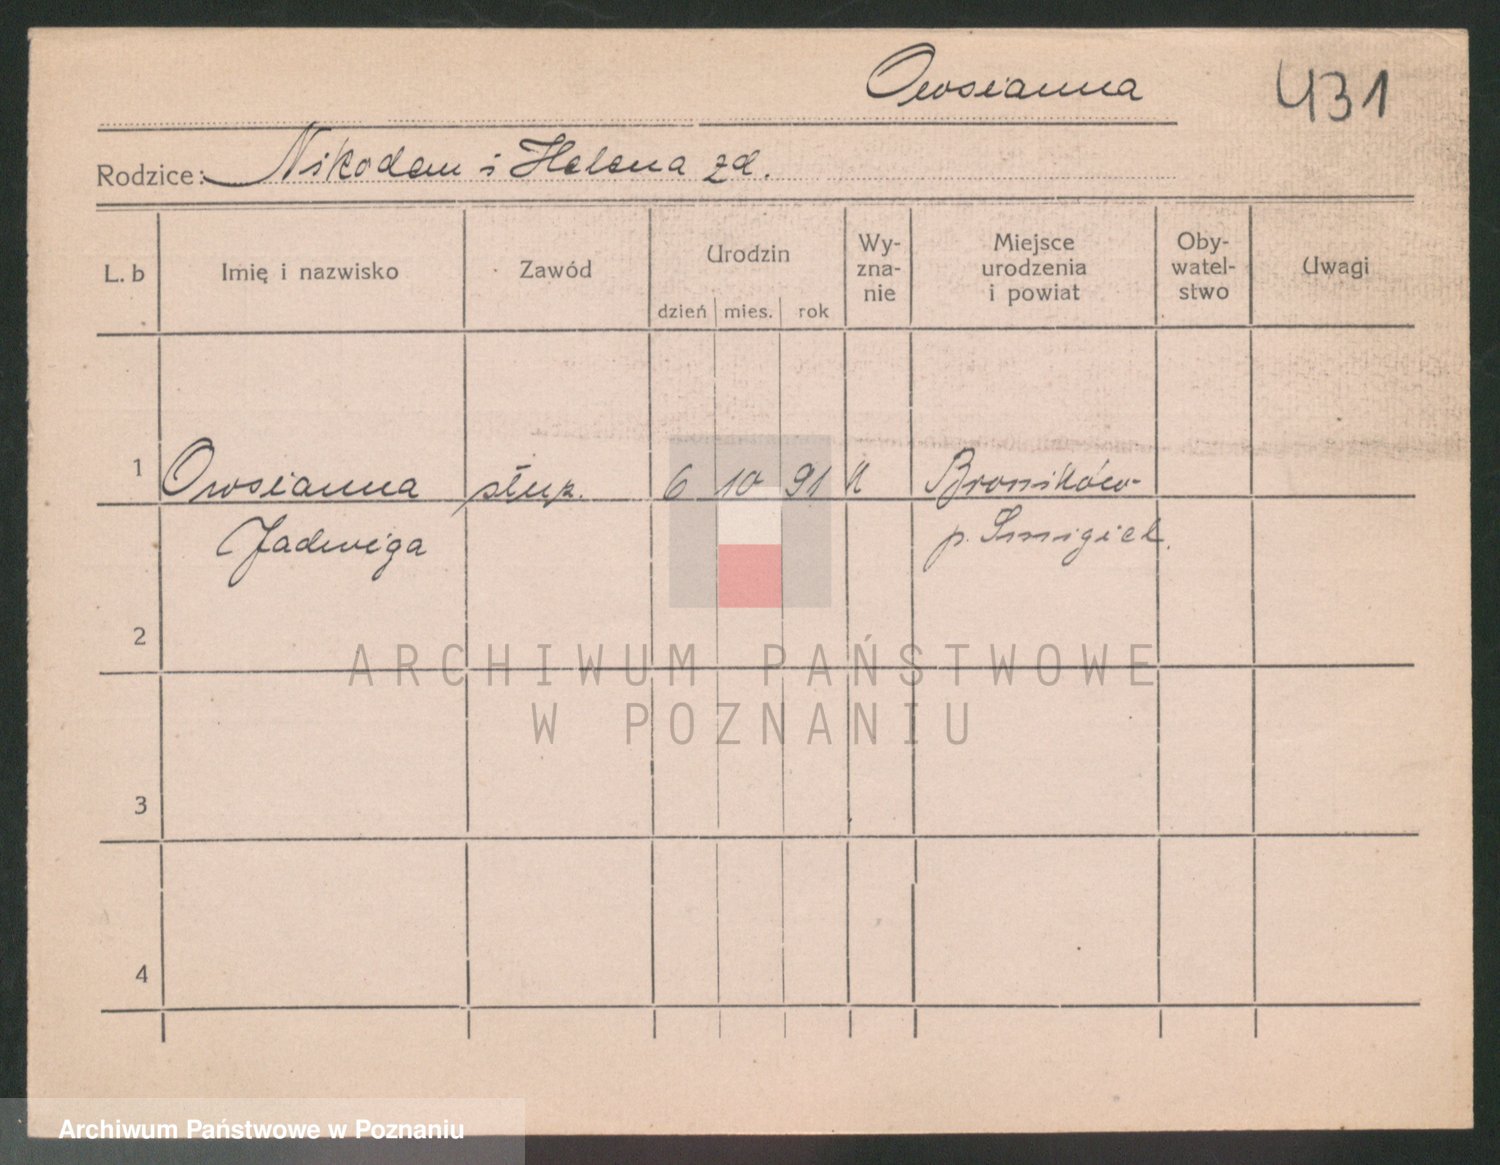 Owsianna 431
Rodzice: Nikodem i Helena zd.
L. b Imię i nazwisko Zawód Urodzin dzień mies. rok Wy-zna-nie Miejsce urodzenia i powiat Oby-watel-stwo Uwagi
1 Owsianna słuz. 6 10 91 K Bronikowo
Jadwiga p. Smigiel.
2
3
4
ARCHIWUM PAŃSTWOWE
W POZNANIU
Archiwum Państwowe w Poznaniu